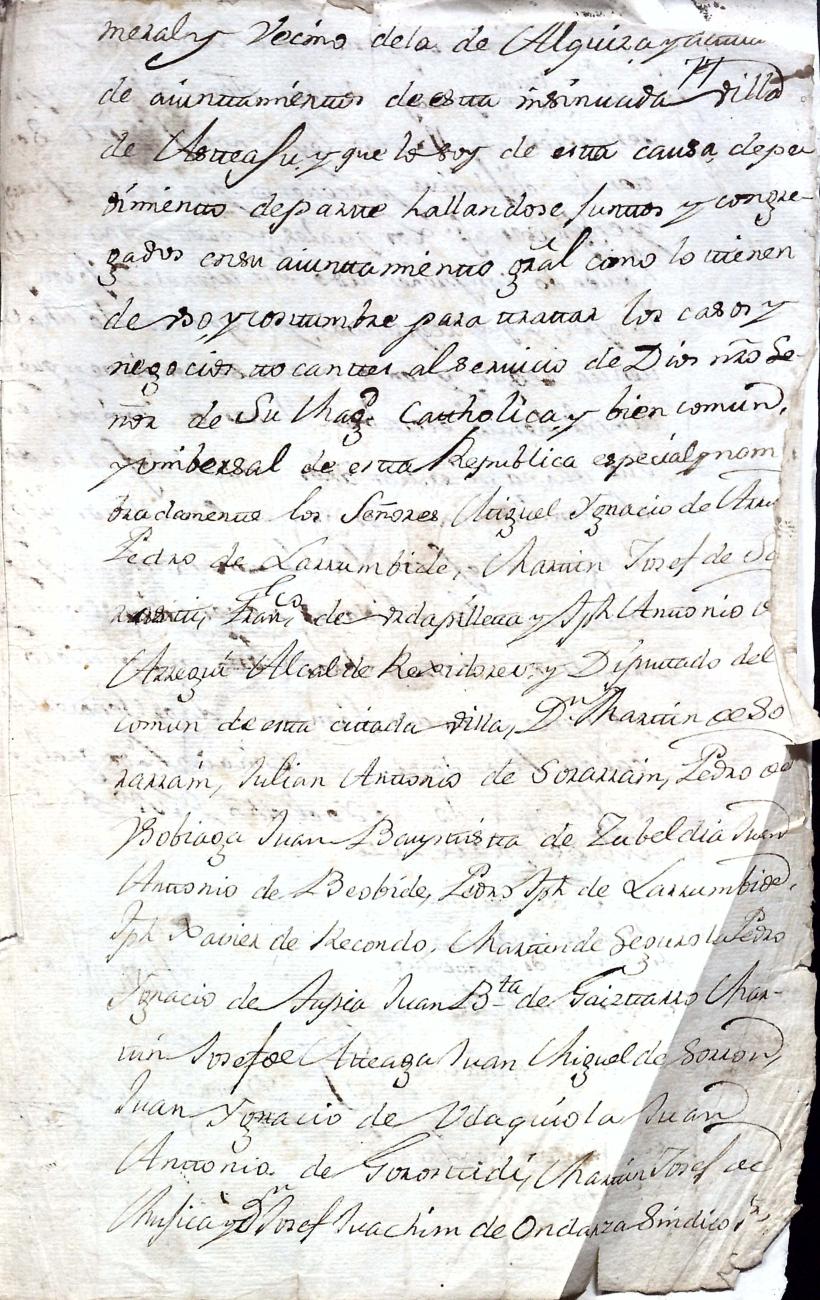 meral y Vecino dela de Alquiza y
de aiuntamientto de esta insinuada villa
de Asteasu, y que lo soy de esta causa, depe
dimientto departe hallandose Juntos y congre-
gados en su aiuntamientto gral como lo tienen
de uso y costumbre para tratar los casos y
negocios tocantes al servicio de Dios nro Se-
ñor de Su Magd Catholica, y bien comun,
y unibersal de esta Republica especial y nom
bradamente los Señores, Miguel Ygnacio de
Pedro de Larrumbide, Martin Josef de So
Franco de Udapilleta y Jph Antonio
Arregui Alcalde Rexidores y Diputado del
comun de esta citada villa, Dn Martin de So
rarrain, Julian Antonio de Sorarrain, Pedro de
Juan Bauptista de Zubeldia Juan
Antonio de Beobide, Pedro Jph de Larrumbide,
Jph Xavier de Recondo, Martin de Segurola Pedro
Ygnacio de Juan Bta de Gaiztarro Mar-
tin Josef de Atteaga Juan Miguel de Sorron,
Juan Ygnacio de Udaquiola Juan
Antonio de Gorostidi, Martin Josef de
Mujica y Dn Josef Juachim de Ondarza Sindico